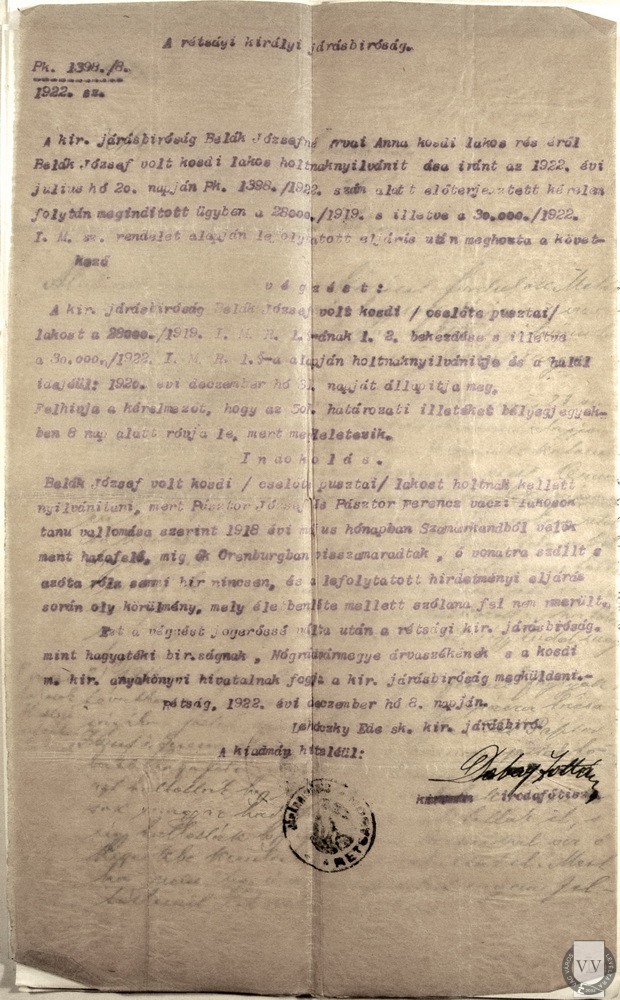 A rétsági királyi járásbíróság.
Pk. 1398./8.
1922. sz.
A kir. járásbíróság Belák Józsefné Anna kosdi lakos részéről
Belák József volt kosdi lakos holtnaknyilvánit ása iránt az 1922. évi
julius hó 20. napján Pk. 1398./1922. szám alatt előterjesztett kérelem
folytán meginditott ügyben a 28000./1919. s illetve a 30.000./1922.
I. M. sz. rendelet alapján lefolytatott eljárás után meghozta a követ-
kező
végzést:
A kir. járásbíróság Belák József volt kosdi / cselőte pusztai/
lakost a 28000./1919. I. M. R. 1. §-ának 1. 2. bekezdése s illetve
a 30.000./1922. I. M. R. 1.§-a alapján holtnaknyilvánitja és a halál
idejéül: 1920. évi deczember hó 31 napját állapitja meg.
Felhivja a kérelmezőt, hogy az 50K. határozati illetéket bélyegjegyek-
ben 8 nap alatt rójja le, mert megleletezik.
Indokolás.
Belák József volt kosdi / cselőte pusztai/ lakost holtnak kellett
nyilvánitani, mert Pásztor József és Pásztor Ferencz váczi lakosok
tanu vallomása szerint 1918 évi május hónapban Szamarkandból velök
ment hazafelé, mig ők Orenburgban visszamaradtak, ő vonatra szállt s
azóta róla semmi hir nincsen, és a lefolytatott hirdetményi eljárás
során oly körülmény, mely éle benléte mellett szólana fel nem merült.
Ezt a végzést jogerőssé válta után a rétsági kir. járásbíróság
mint hagyatéki biróságnak, Nógrádvármegye árvaszékének s a kosdi
m. kir. anyakönyvi hivatalnak fogja a kir. járásbíróság megküldeni.-
Rétság, 1922. évi deczember hó 8. napján.
Lehoczky Ede sk. kir. járásbíró.
A kiadmány hiteléül:
irodafőtiszt
RÉTSÁG
VV